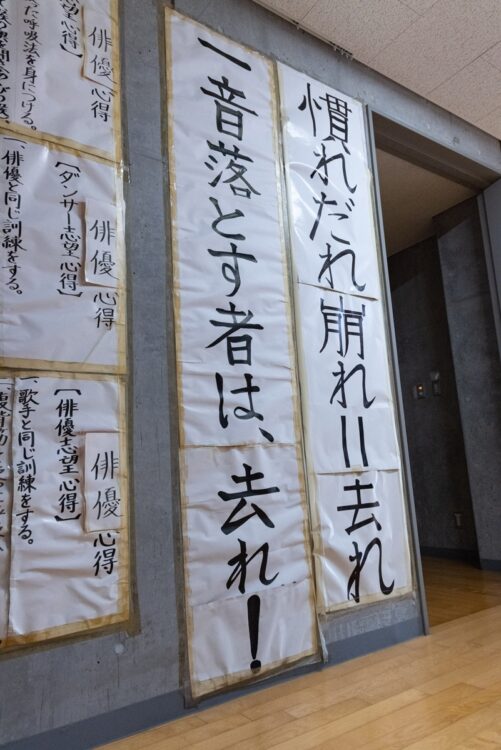 慣れだれ崩れ＝去れ
一音落とす者は、去れ！
俳優心得
た呼吸法を身につける。
俳優心得
【ダンサー志望心得】
一、俳優と同じ訓練をする。
俳優心得
【俳優志望心得】
一、歌手と同じ訓練をする。